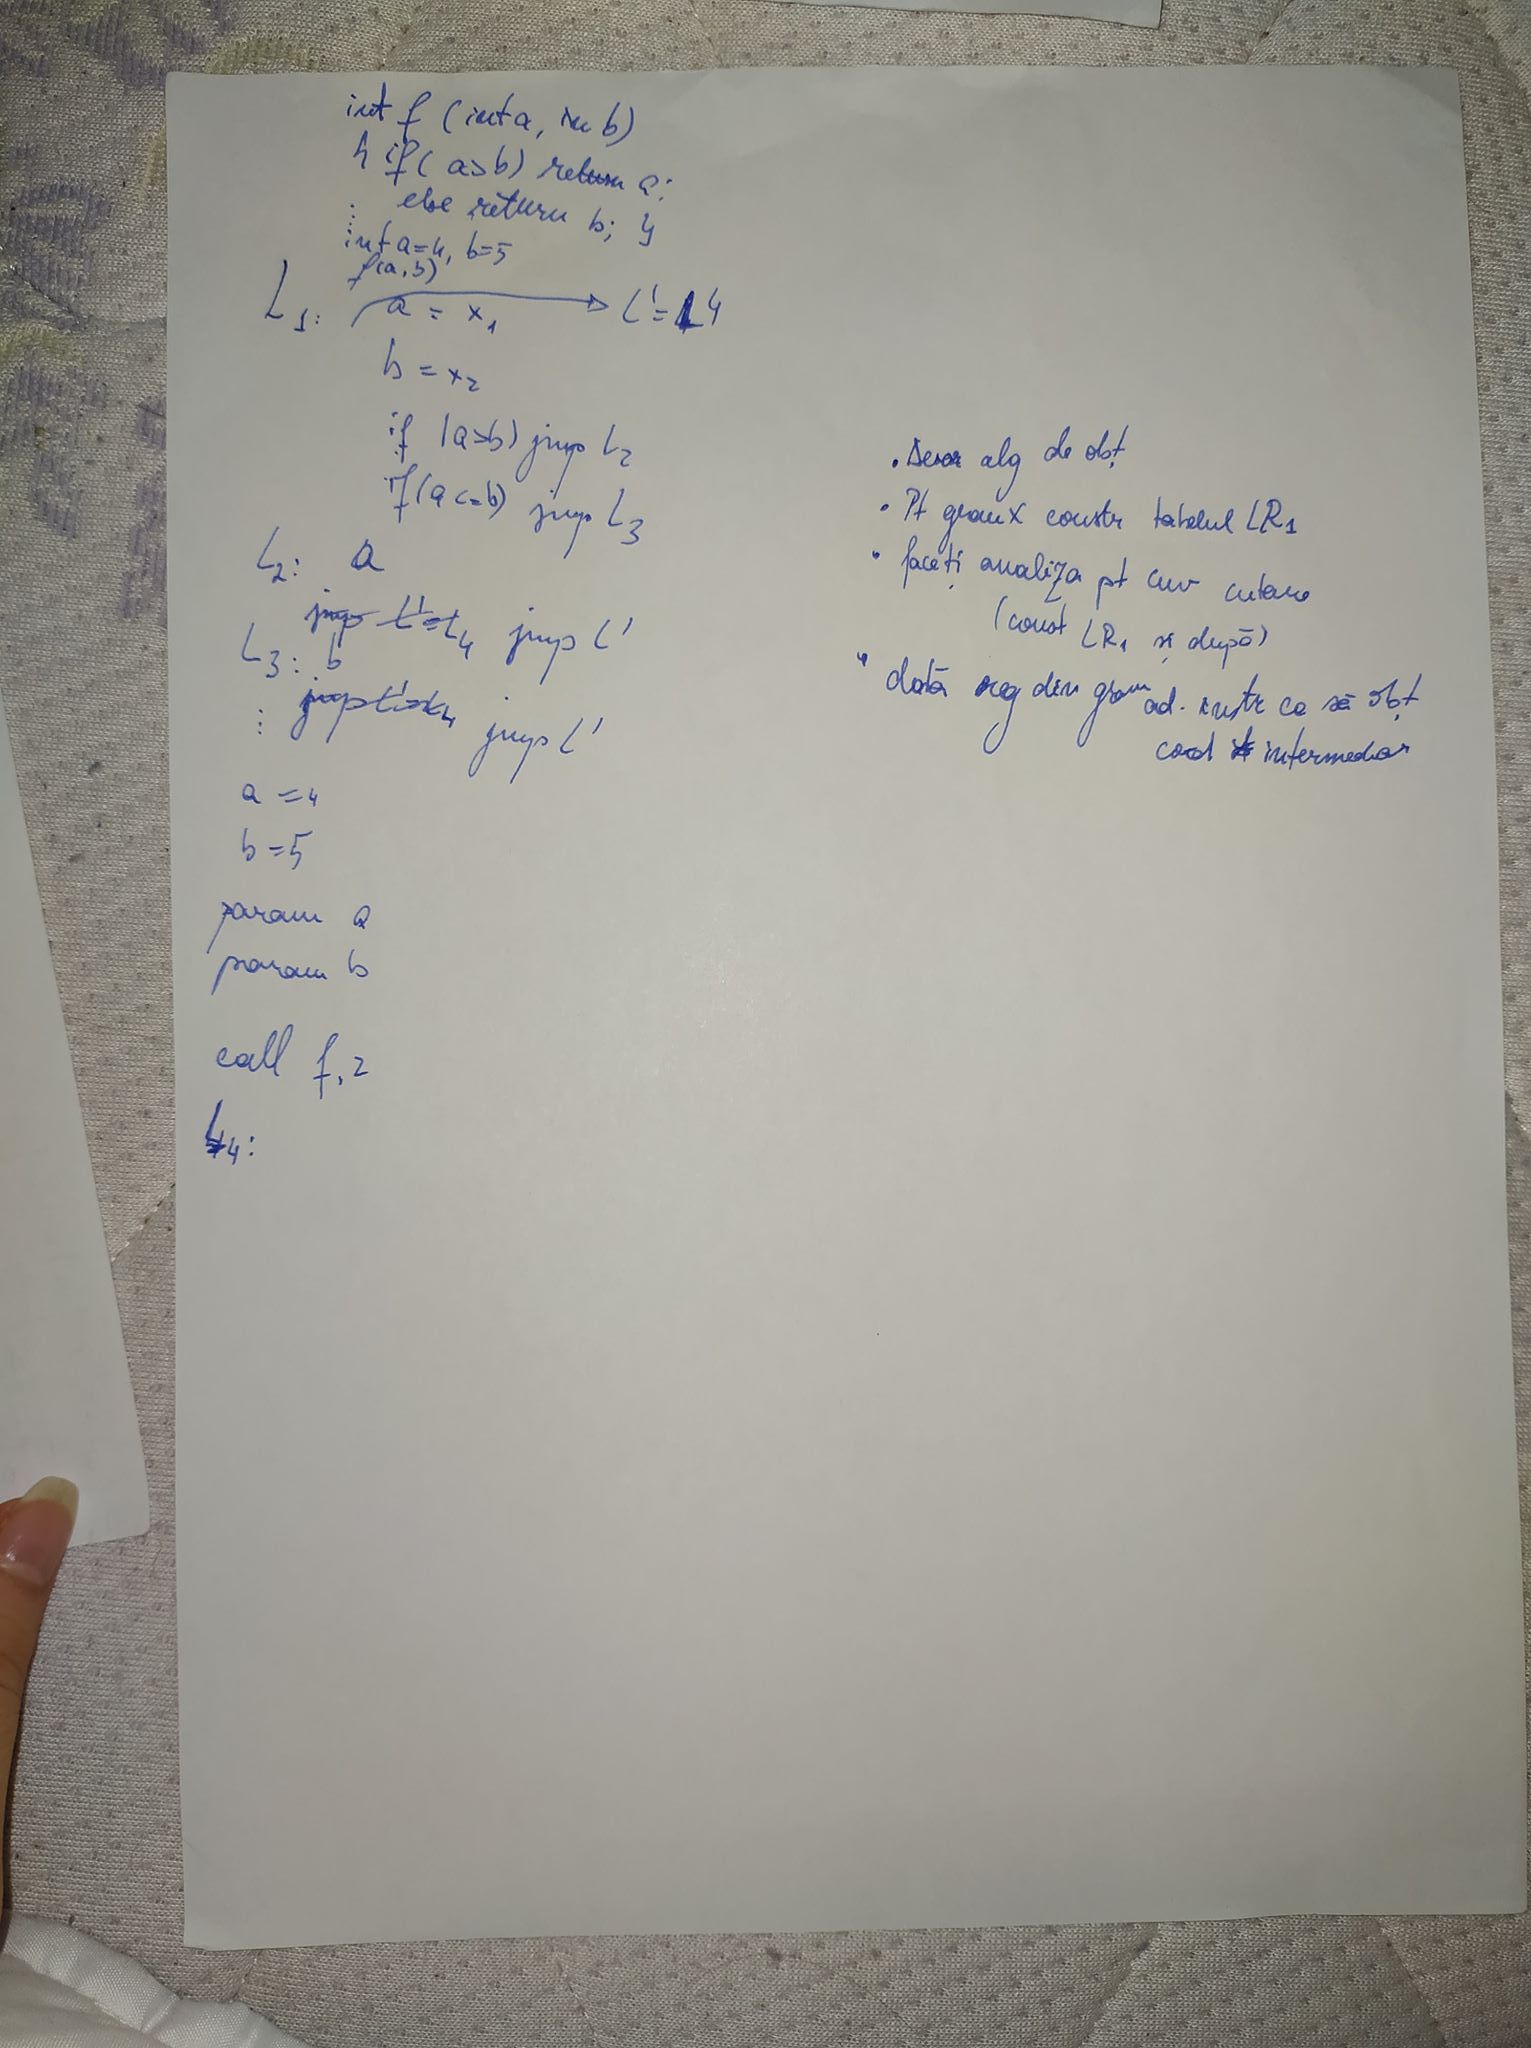 int f (int a, in b)
{ if( a>b) return a;
⋮ else return b; }
int a=4, b=5
f(a,b)
L1: a = x1 → L'=L4
b = x2
if (a>b) jmp L2
if(a<=b) jmp L3
L2: a
jmp L'=L4 jmp L'
L3: b
⋮ jmp L'=L4 jmp L'
a=4
b=5
param a
param b
call f,2
L4:
• alg de obț
• Pt gram X constr tabelul LR1
• faceți analiza pt cuv cutare
(const LR1 și după)
• dată reg din gram ad. instr ca să obț
cod intermediar